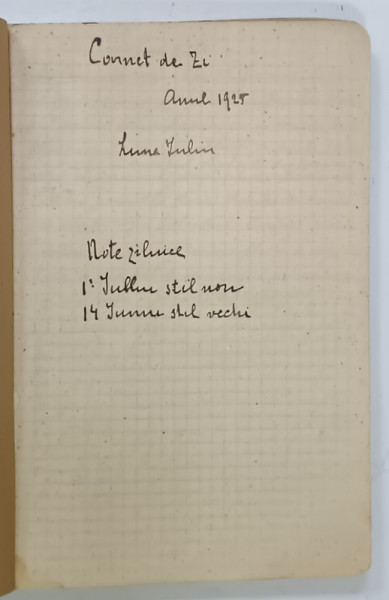 Carnet de Zi
Anul 1925
Luna Iuliu
Note zilnice
1 Iulliu stil nou
14 Iuniu stil vechi